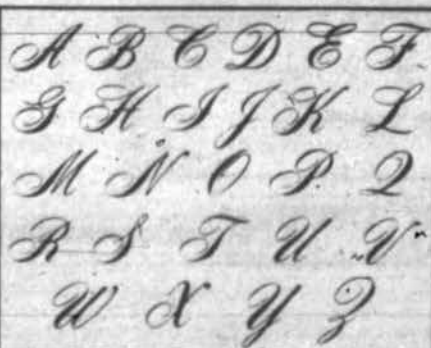 A B C D E F
G H I J K L
M N O P Q
R S T U "V"
W X Y Z